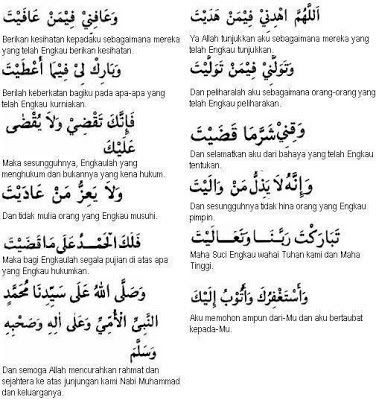 اَللّٰهُمَّ اهْدِنِيْ فِيْمَنْ هَدَيْتَ
Ya Allah tunjukkan aku sebagaimana mereka
yang telah Engkau tunjukkan.
وَعَافِنِيْ فِيْمَنْ عَافَيْتَ
Berikan kesihatan kepadaku sebagaimana mereka
yang telah Engkau berikan kesihatan.
وَتَوَلَّنِيْ فِيْمَنْ تَوَلَّيْتَ
Dan peliharalah aku sebagaimana orang-orang yang
telah Engkau peliharakan.
وَبَارِكْ لِيْ فِيْمَا أَعْطَيْتَ
Berilah keberkatan bagiku pada apa-apa yang
telah Engkau kurniakan.
وَقِنِيْ شَرَّمَا قَضَيْتَ
Dan selamatkan aku dari bahaya yang telah Engkau
tentukan.
فَإِنَّكَ تَقْضِيْ وَلاَ يُقْضَى
عَلَيْكَ
Maka sesungguhnya, Engkaulah yang
menghukum dan bukannya yang kena hukum.
وَإِنَّهُ لاَ يَذِلُّ مَنْ وَالَيْتَ
Dan sesungguhnya tidak hina orang yang Engkau
pimpin.
وَلاَ يَعِزُّ مَنْ عَادَيْتَ
Dan tidak mulia orang yang Engkau musuhi.
تَبَارَكْتَ رَبَّنَا وَتَعَالَيْتَ
Maha Suci Engkau wahai Tuhan kami dan Maha
Tinggi.
فَلَكَ الْحَمْدُ عَلَى مَا قَضَيْتَ
Maka bagi Engkaulah segala pujian di atas apa
yang Engkau hukumkan.
وَأَسْتَغْفِرُكَ وَأَتُوْبُ إِلَيْكَ
Aku memohon ampun dari-Mu dan aku bertaubat
kepada-Mu.
وَصَلَّى اللهُ عَلَى سَيِّدِنَا مُحَمَّدٍ
النَّبِيِّ الْأُمِّيِّ وَعَلَى آلِهِ وَصَحْبِهِ
وَسَلَّمَ
Dan semoga Allah mencurahkan rahmat dan
sejahtera ke atas junjungan kami Nabi Muhammad
dan keluarganya.